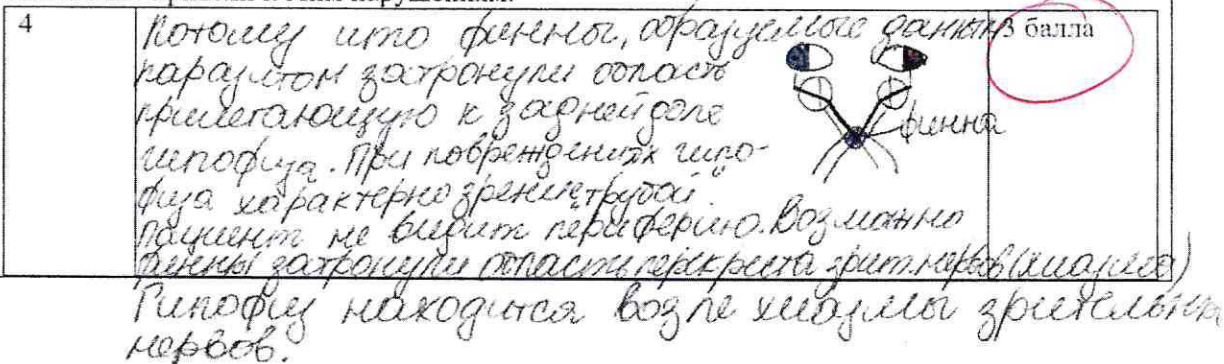 4
Потому што финны, образуемые данным
3 балла
паразитом затронули область
прилегающую к задней доле
гипофиза. При повреждениях гипо-
физа характерно зрение „трубой".
Пациент не видит периферию. Возможно
финны затронули область перекреста зрит. нервов (хиазмов)
финна
Гипофиз находится возле хиазмы зрительных
нервов.